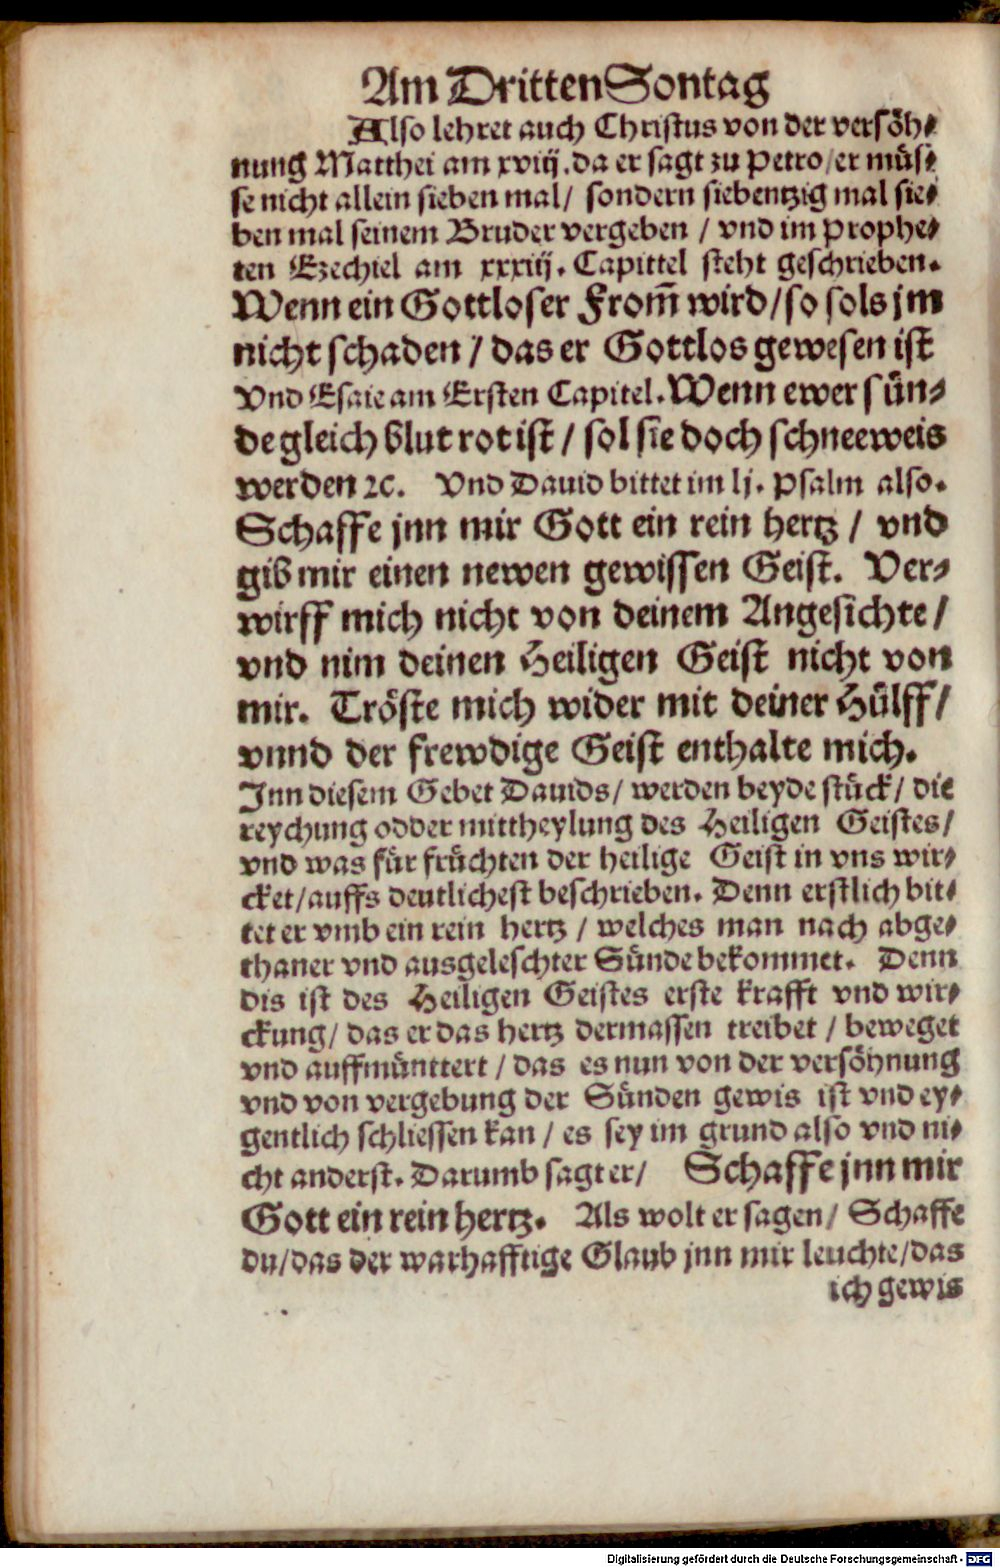 Am Dritten Sontag
Also lehret auch Christus von der versöh⸗
nung Matthei am xviij. da er sagt zu Petro/ er müs⸗
se nicht allein sieben mal/ sondern siebentzig mal sie⸗
ben mal seinem Bruder vergeben / vnd im Prophe⸗
ten Ezechiel am xxxiij. Capittel steht geschrieben.
Wenn ein Gottloser From̃ wird/ so sols jm
nicht schaden / das er Gottlos gewesen ist
Vnd Esaie am Ersten Capitel. Wenn ewer sün⸗
de gleich blut rot ist / sol sie doch schneeweis
werden ꝛc. Vnd Dauid bittet im lj. Psalm also.
Schaffe jnn mir Gott ein rein hertz / vnd
gib mir einen newen gewissen Geist. Ver⸗
wirff mich nicht von deinem Angesichte/
vnd nim deinen Heiligen Geist nicht von
mir. Tröste mich wider mit deiner Hülff/
vnnd der frewdige Geist enthalte mich.
Jnn diesem Gebet Dauids/ werden beyde stück/ die
reychung odder mittheylung des Heiligen Geistes/
vnd was für früchten der heilige Geist in vns wir⸗
cket/ auffs deutlichest beschrieben. Denn erstlich bit⸗
tet er vmb ein rein hertz / welches man nach abge⸗
thaner vnd ausgeleschter Sünde bekommet. Denn
dis ist des Heiligen Geistes erste krafft vnd wir⸗
ckung/ das er das hertz dermassen treibet / beweget
vnd auffmünttert / das es nun von der versöhnung
vnd von vergebung der Sünden gewis ist vnd ey⸗
gentlich schliessen kan / es sey im grund also vnd ni⸗
cht anderst. Darumb sagt er/ Schaffe jnn mir
Gott ein rein hertz. Als wolt er sagen/ Schaffe
du/ das der warhafftige Glaub jnn mir leuchte/ das
ich gewis
Digitalisierung gefördert durch die Deutsche Forschungsgemeinschaft - DFG